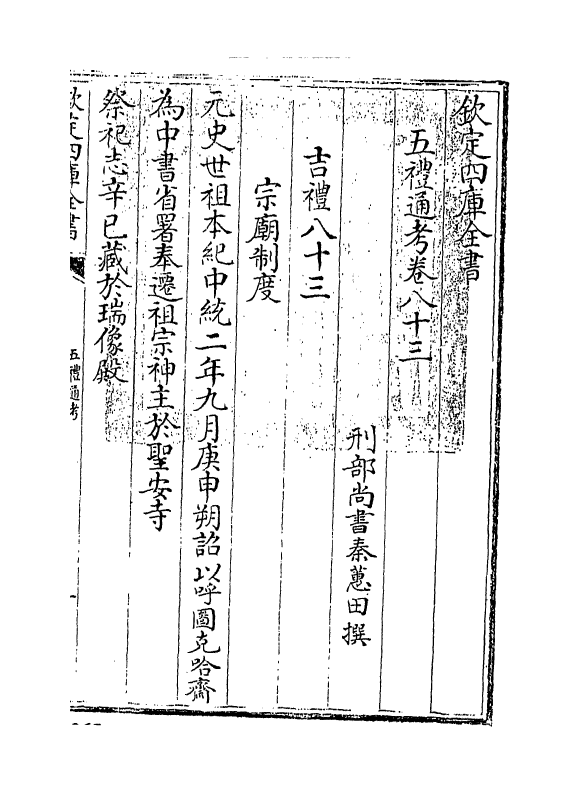 欽定四庫全書
五禮通考卷八十三
刑部尚書秦蕙田撰
吉禮八十三
宗廟制度
元史世祖本紀中統二年九月庚申朔詔以呼圖克哈齋
為中書省署奉遷祖宗神主於聖安寺
祭祀志辛巳藏於瑞像殿
欽定四庫全書
五禮通考
一